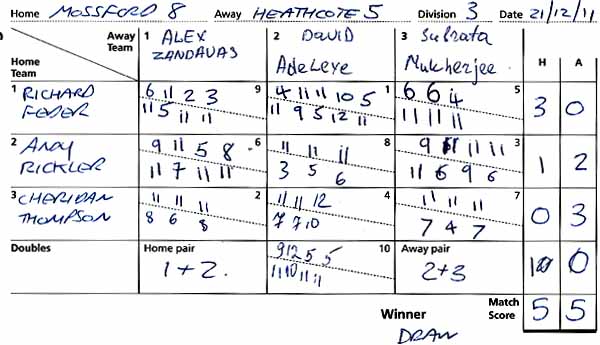 Home MOSSFORD 8 Away HEATHCOTE 5 Division 3 Date 21/12/11
Away Team 1 ALEX ZANDAVAS 2 DAVID Adeleye 3 Subrata Mukherjee H A
Home Team
1 RICHARD FEDER 9 1 5 3 0
6 11 2 3 4 11 11 10 5 6 6 4
11 5 11 11 11 9 5 12 11 11 11 11
2 ANDY RICKLER 6 8 3 1 2
9 11 5 8 11 11 11 9 11 11 11
11 7 11 11 3 5 6 11 6 9 6
3 CHERIDAN THOMPSON 2 4 7 0 3
11 11 11 11 11 12 11 11 11
8 6 8 7 7 10 7 4 7
Doubles Home pair 10 Away pair 1 0
1+2. 9 12 5 5 2+3
11 10 11 11
Winner Match Score 5 5
DRAW